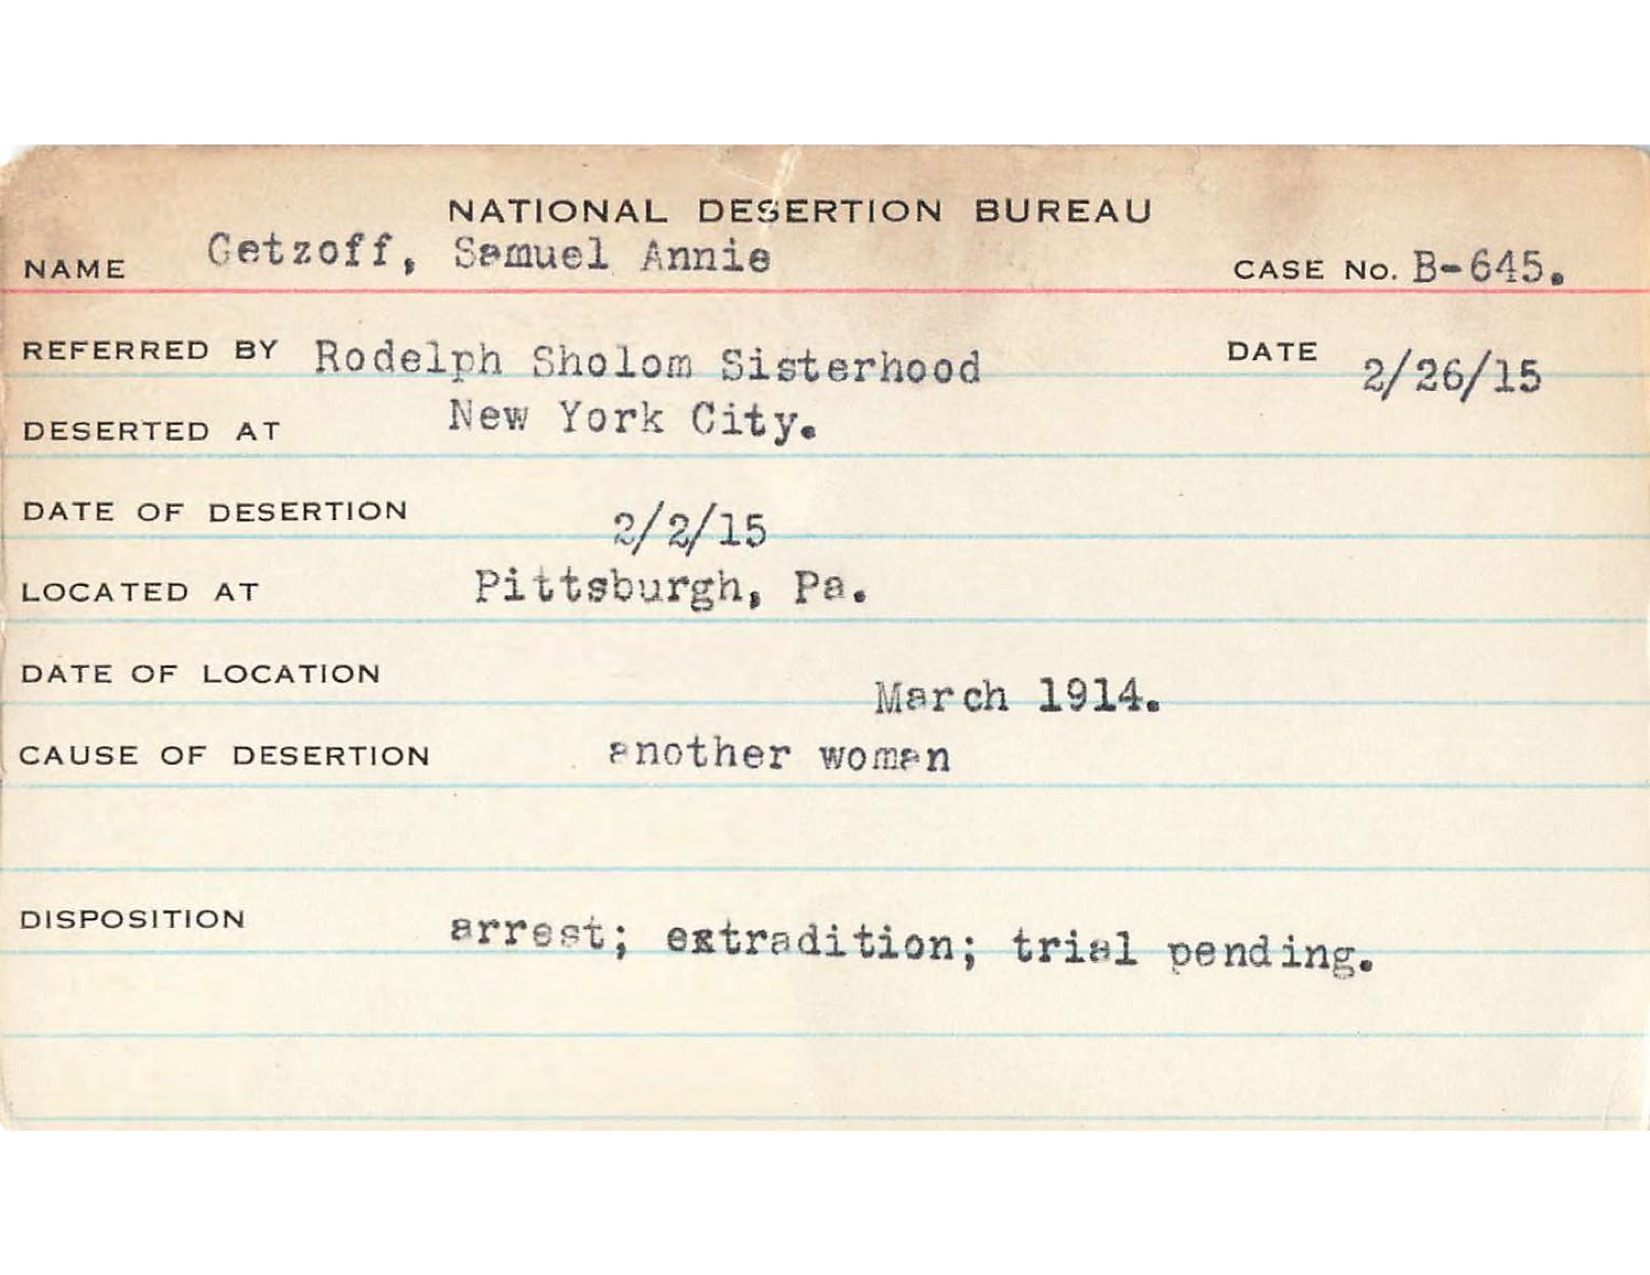 NATIONAL DESERTION BUREAU
NAME Getzoff, Samuel Annie CASE No. B-645.
REFERRED BY Rodelph Sholom Sisterhood DATE 2/26/15
DESERTED AT New York City.
DATE OF DESERTION 2/2/15
LOCATED AT Pittsburgh, Pa.
DATE OF LOCATION March 1914.
CAUSE OF DESERTION another woman
DISPOSITION arrest; extradition; trial pending.